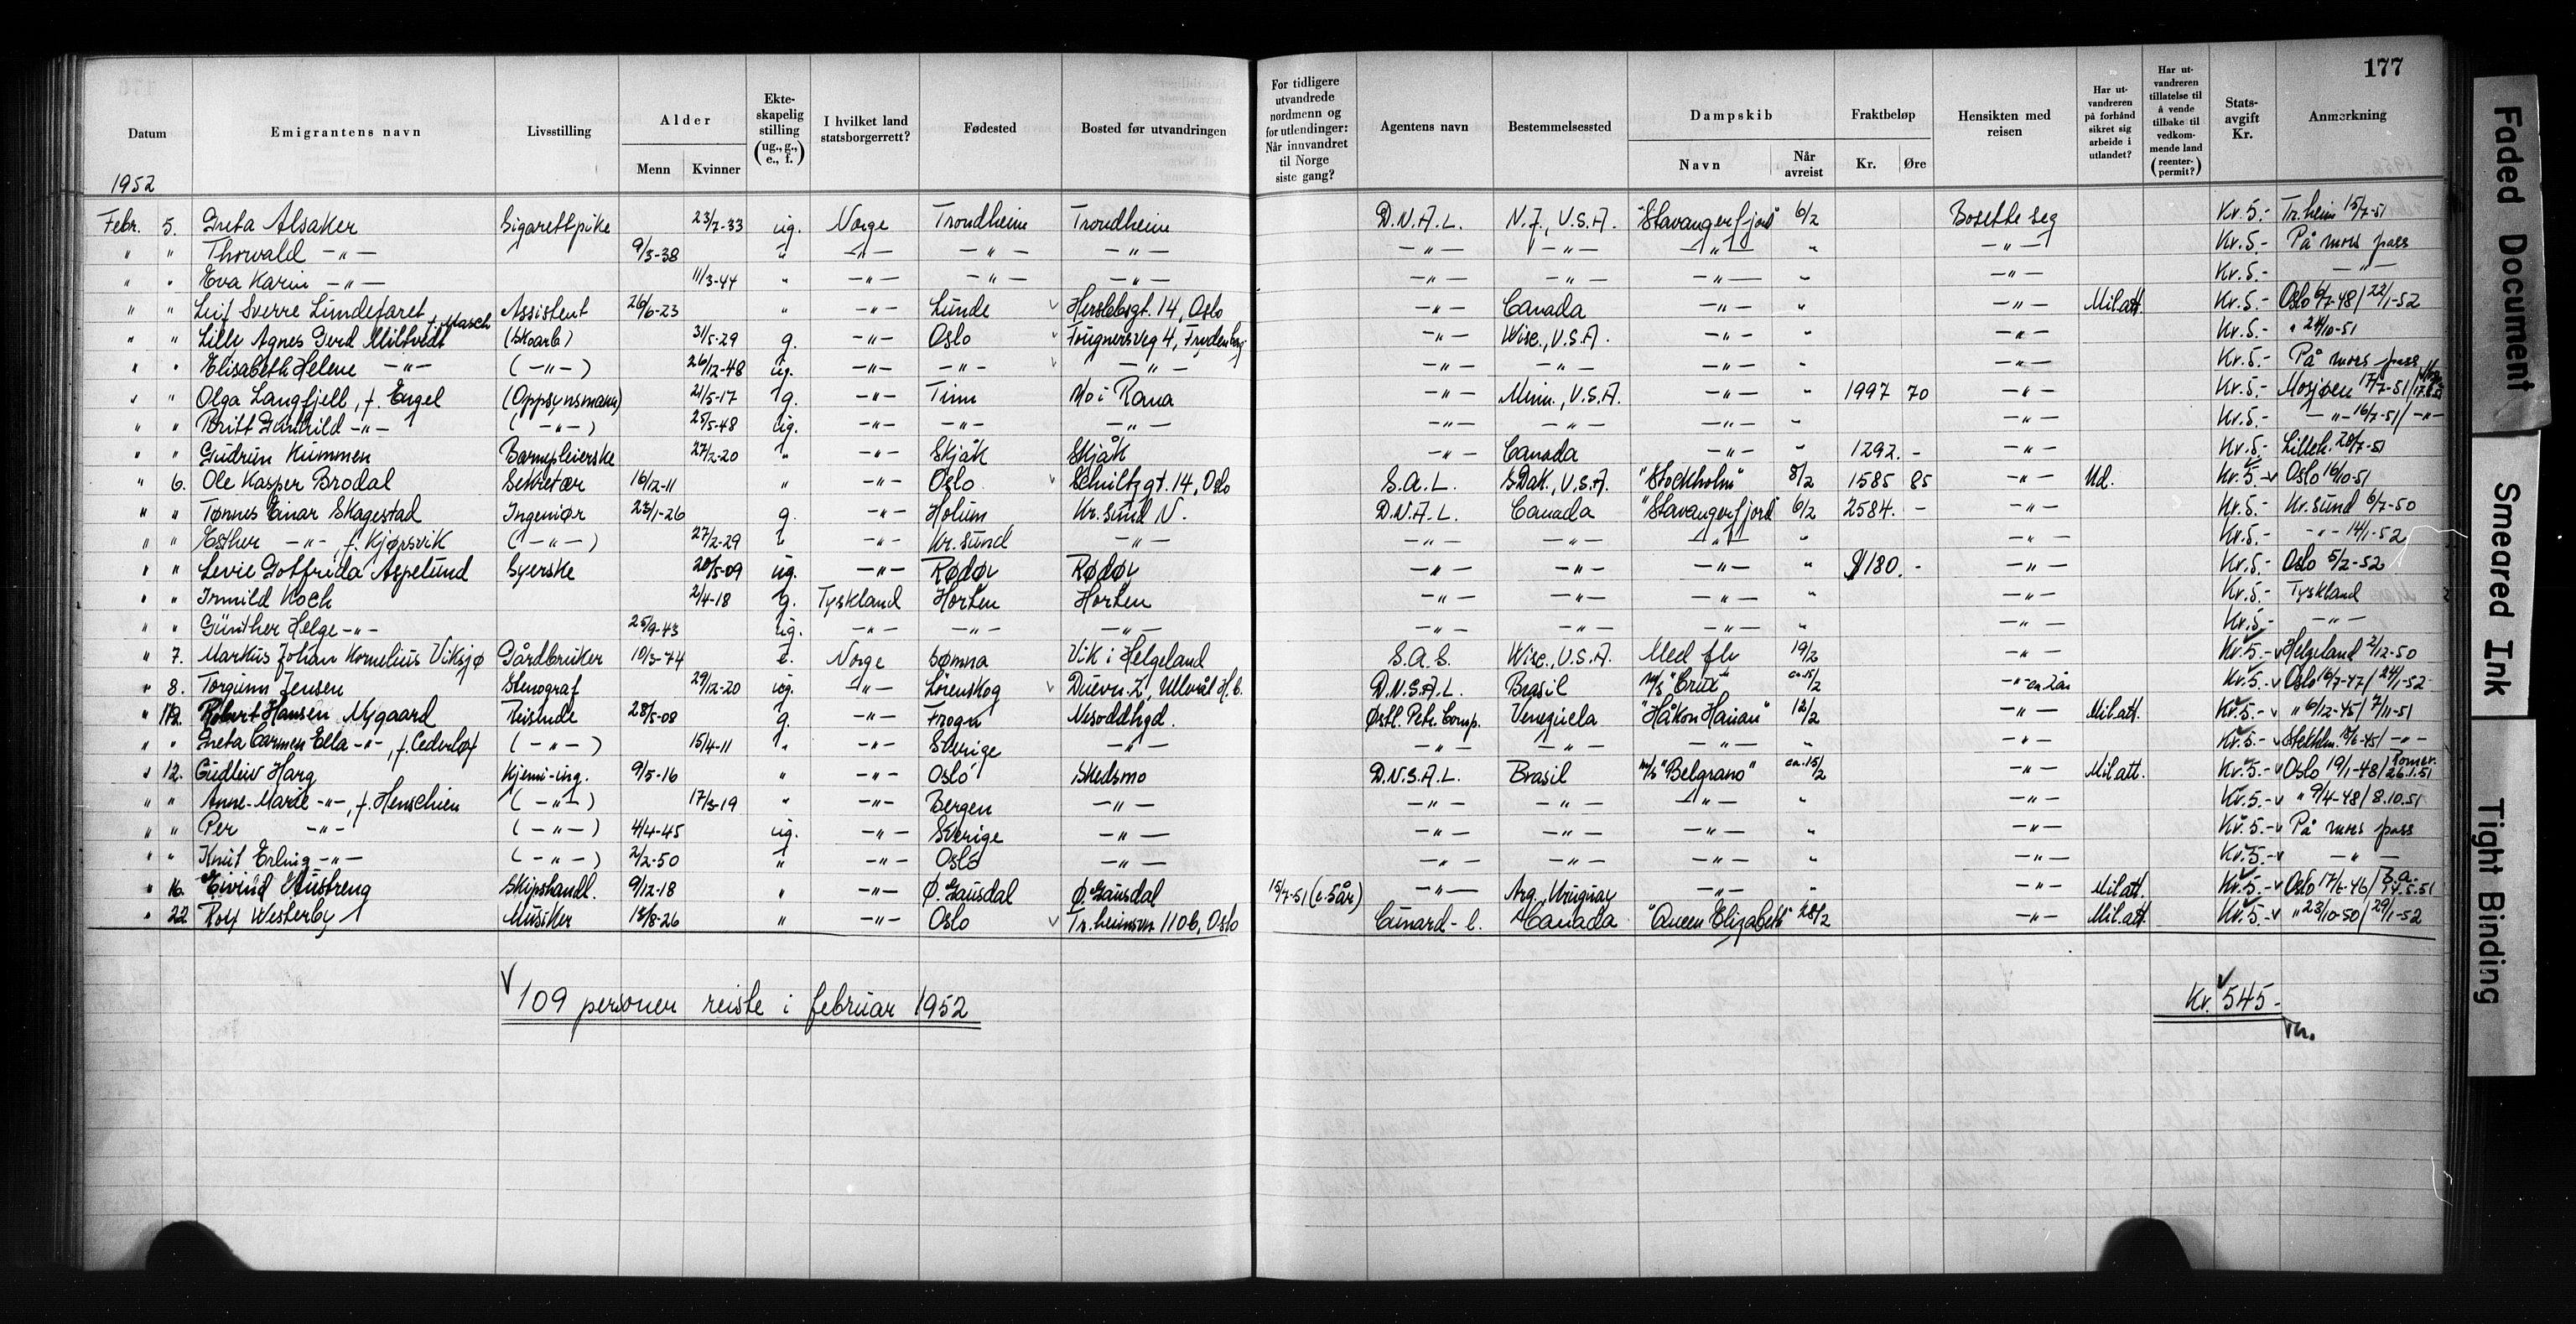 177
Datum | Emigrantens navn | Livsstilling | Alder Menn | Kvinner | Ekteskapelig stilling (ug., g., e., f.) | I hvilket land statsborgerrett? | Fødested | Bosted før utvandringen | For tidligere utvandrede nordmenn og for utlendinger: Når innvandret til Norge siste gang? | Agentens navn | Bestemmelsessted | Dampskib Navn | Når avreist | Fraktbeløp Kr. | Øre | Hensikten med reisen | Har utvandreren på forhånd sikret sig arbeide i utlandet? | Har utvandreren tillatelse til å vende tilbake til vedkommende land (reenterpermit?) | Statsavgift Kr. | Anmerkning
1952
Febr. 5. Greta Alsaker | Sigarettpike | 23/7-33 | ug. | Norge | Trondheim | Trondheim | D.N.A.L. | N.J., U.S.A. | "Stavangerfjord" | 6/2 | Bosette seg | Kr. 5.- | Tr.heim 15/7-51
" " Thorvald -"- | 9/3-38 | " | -"- | -"- | -"- | -"- | -"- | -"- | " | -"- | Kr. 5.- | På mors pass
" " Eva Karin -"- | 11/3-44 | " | -"- | -"- | -"- | -"- | -"- | -"- | " | -"- | Kr. 5.- | -"-
" " Leif Sverre Lundefaret | Assistent | 26/6-23 | " | -"- | Lunde | Herslebsgt. 14, Oslo | -"- | Canada | -"- | " | -"- | Mil.att. | Kr. 5.- | Oslo 6/7-48 / 22/1-52
" " Lille Agnes Gerd Miltvedt, f. Masch | (Skoarb) | 31/5-29 | g. | -"- | Oslo | Fougnersveg 4, Frydenberg | -"- | Wisc., U.S.A. | -"- | " | -"- | Kr. 5.- | " 24/10-51
" " Elisabeth Helene -"- | (-"-) | 26/12-48 | ug. | -"- | -"- | -"- | -"- | -"- | -"- | " | -"- | Kr. 5.- | På mors pass
" " Olga Langfjell, f. Engel | (Oppsynsmann) | 21/5-17 | g. | -"- | Tinn | Mo i Rana | -"- | Minn., U.S.A. | -"- | " | 1997 | 70 | -"- | Kr. 5.- | Mosjøen 17/7-51
" " Britt Gunhild -"- | (-"-) | 25/5-48 | ug. | -"- | -"- | -"- | -"- | -"- | -"- | " | -"- | Kr. 5.- | -"- 16/7-51 / -"-
" " Gudrun Kummen | Barnepleierske | 27/2-20 | " | -"- | Skjåk | Skjåk | -"- | Canada | -"- | " | 1292. | - | -"- | Kr. 5.- | Lilleh. 20/7-51
" 6. Ole Kasper Brodal | Sekretær | 16/12-11 | " | -"- | Oslo | Schultzgt. 14, Oslo | S.A.L. | S.Dak., U.S.A. | "Stockholm" | 8/2 | 1585 | 85 | -"- | Ud. | Kr. 5.- | Oslo 16/10-51
" " Tønnes Einar Skagestad | Ingeniør | 23/1-26 | g. | -"- | Holum | Kr.sund N. | D.N.A.L. | Canada | "Stavangerfjord" | 6/2 | 2584. | - | -"- | Kr. 5.- | Kr.sund 6/7-50
" " Esther -"-, f. Kjøpsvik | (-"-) | 27/2-29 | " | -"- | Kr.sund | -"- | -"- | -"- | -"- | " | -"- | Kr. 5.- | -"- 14/1-52
" " Levie Gotfrida Aspelund | Syerske | 20/5-09 | ug. | -"- | Rødøy | Rødøy | -"- | -"- | -"- | " | $180. | - | -"- | Kr. 5.- | Oslo 5/2-52
" " Irmild Koch | 2/4-18 | g. | Tyskland | Horten | Horten | -"- | -"- | -"- | " | -"- | Kr. 5.- | Tyskland
" " Günther Helge -"- | 25/9-43 | ug. | -"- | -"- | -"- | -"- | -"- | -"- | " | -"- | Kr. 5.- | -"-
" 7. Markus Johan Kornelius Viksjø | Gårdbruker | 10/3-74 | e. | Norge | Sømna | Vik i Helgeland | S.A.S. | Wisc., U.S.A. | Med fly | 19/2 | -"- | Kr. 5.- | Helgeland 2/12-50
" 8. Torgunn Jensen | Stenograf | 29/12-20 | ug. | -"- | Lørenskog | Duevn. 2, Ullevål H.b. | D.N.S.A.L. | Brasil | m/s "Crux" | ca. 15/2 | -"- ca 2 år | Kr. 5.- | Oslo 16/7-47 / 24/1-52
" 12. Robert Hansen Nygaard | Reisende | 28/5-08 | g. | -"- | Frogn | Nesoddhgd. | Østl. Petr. Comp. | Venezuela | "Håkon Hauan" | 12/2 | -"- | Mil.att. | Kr. 5.- | " 6/12-45 / 7/11-51
" " Greta Carmen Ella -"-, f. Cederløf | (-"-) | 15/4-11 | " | -"- | Sverige | -"- | -"- | -"- | -"- | " | -"- | Kr. 5.- | Stckhlm. 15/6-45 / -"-
" 12. Gudleiv Harg | Kjemi-ing. | 9/5-16 | " | -"- | Oslo | Skedsmo | D.N.S.A.L. | Brasil | m/s "Belgrano" | ca. 15/2 | -"- | Mil att. | Kr. 5.- | Oslo 19/1-48 / Romer. 26.1.51
" " Anne-Marie -"-, f. Henschien | (-"-) | 17/3-19 | " | -"- | Bergen | -"- | -"- | -"- | -"- | " | -"- | Kr. 5.- | " 9/4-48 / 8.10.51
" " Per -"- | (-"-) | 4/4-45 | ug. | -"- | Sverige | -"- | -"- | -"- | -"- | " | -"- | Kr. 5.- | På mors pass
" " Knut Erling -"- | (-"-) | 2/2-50 | " | -"- | Oslo | -"- | -"- | -"- | -"- | " | -"- | Kr. 5.- | -"-
" 16. Eivind Austreng | Skipshandl. | 9/12-18 | " | -"- | Ø. Gausdal | Ø. Gausdal | 15/7-51 (e. 5 år) | -"- | Arg., Uruguay | -"- | " | -"- | Mil att. | Kr. 5.- | Oslo 17/6-46 / B.a. 17.5.51
" 22 Rolf Westerby | Musiker | 15/8-26 | " | -"- | Oslo | Tr.heimsvn 110b, Oslo | Cunard-l. | Canada | "Queen Elizabeth" | 28/2 | -"- | Mil.att. | Kr. 5.- | " 23/10-50 / 29/1-52
109 personer reiste i februar 1952
Kr. 545-
Faded Document
Smeared Ink
Tight Binding